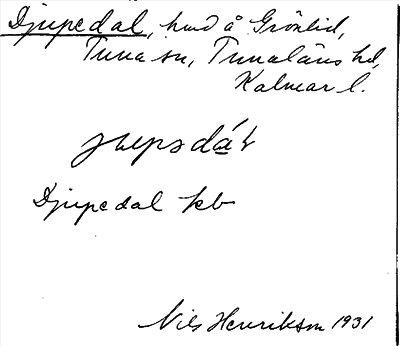 Djupedal, hmd å Grönlid,
Tuna sn, Tunaläns hd,
Kalmar l.
jupsdáɫ
Djupedal kb
Nils Henrikson 1931